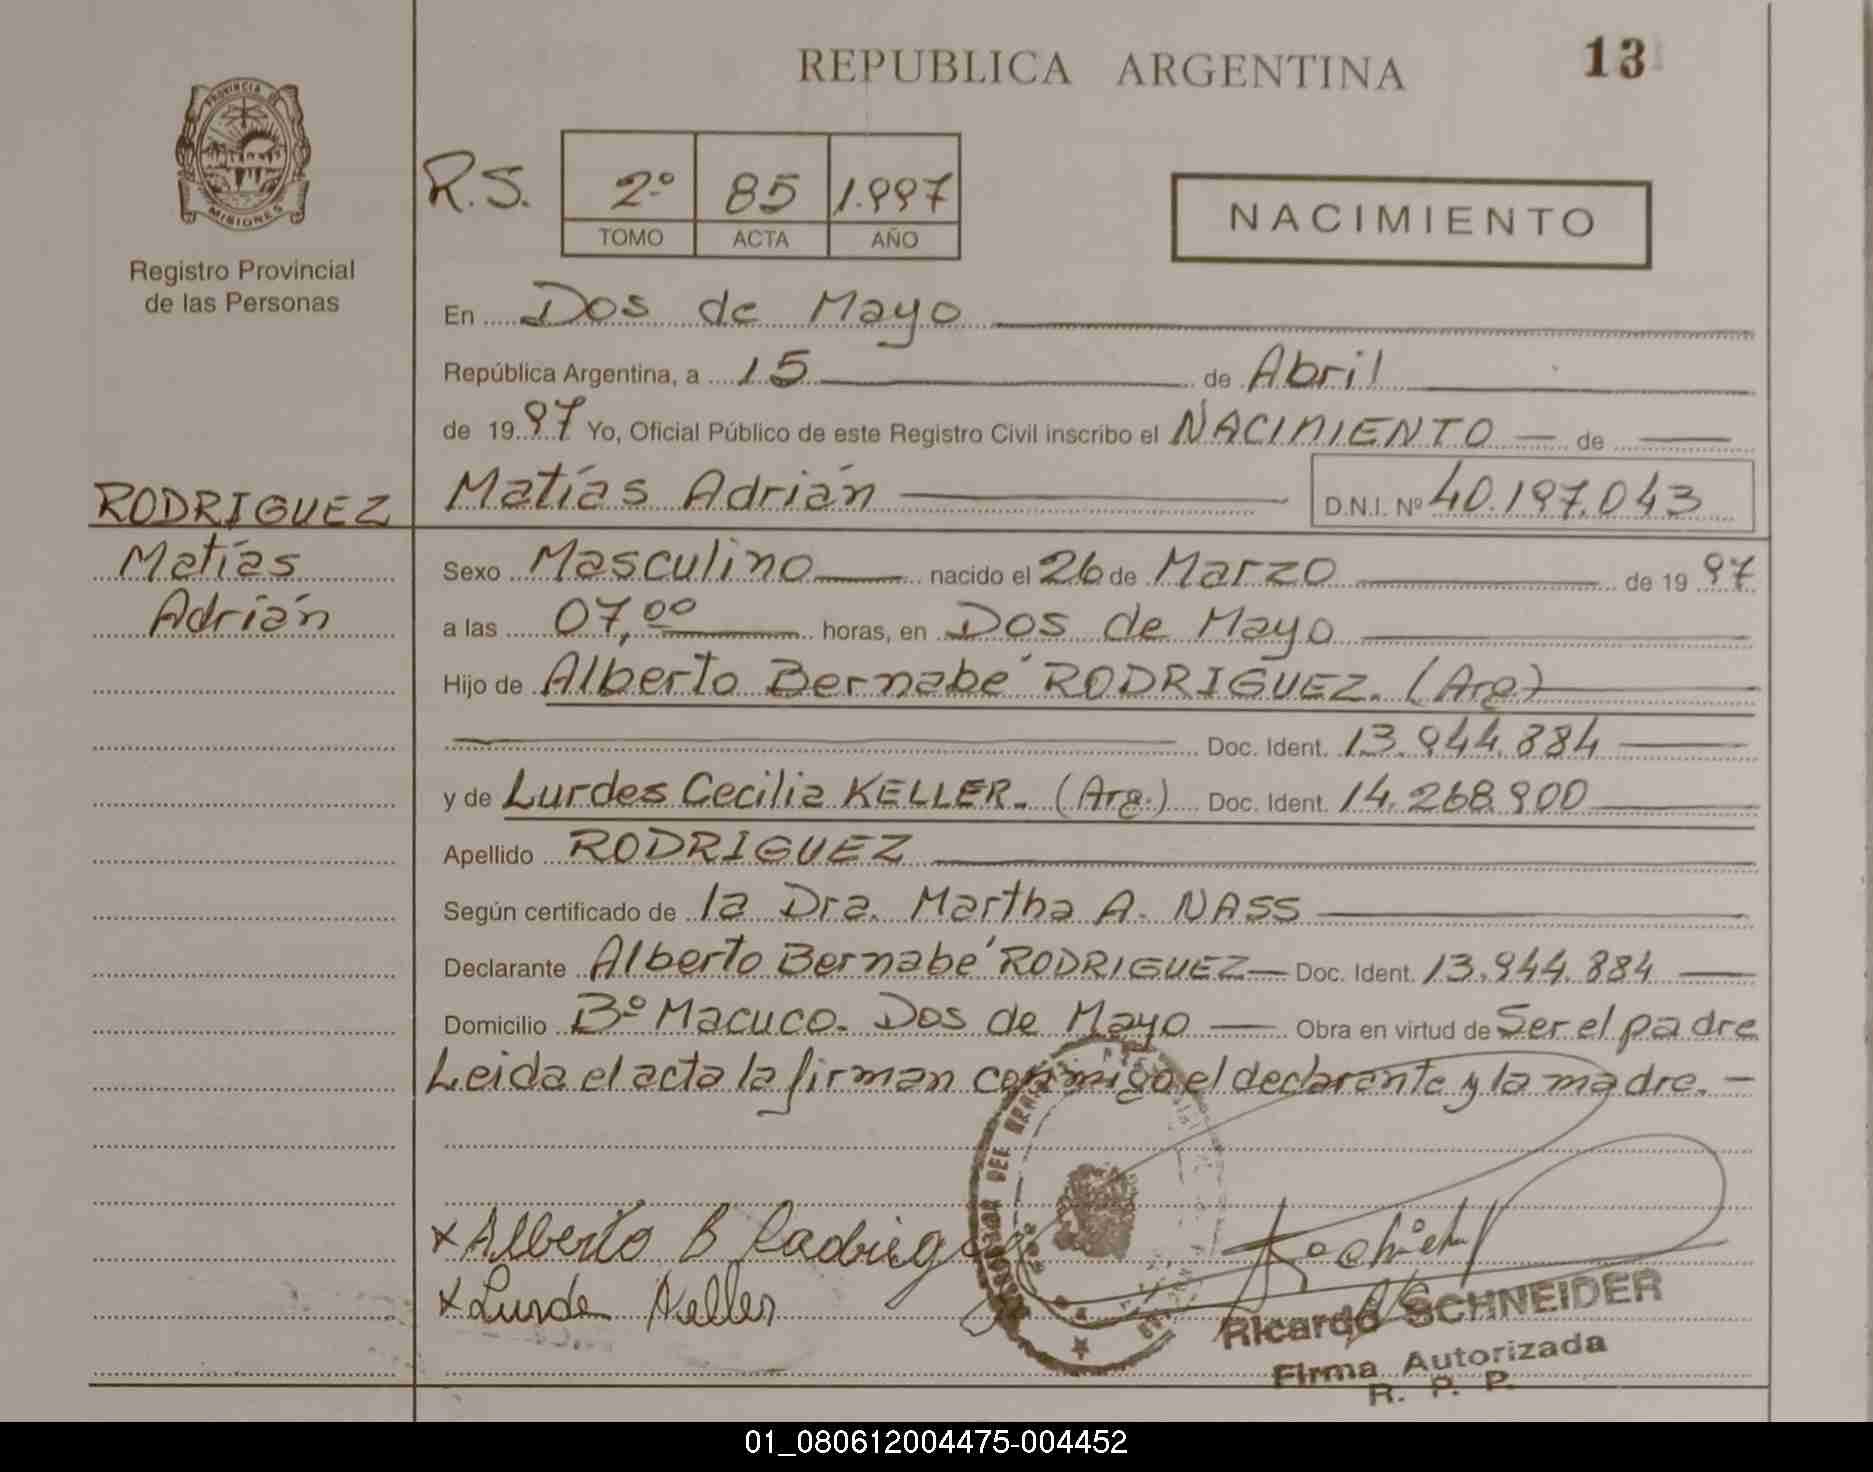 REPUBLICA ARGENTINA
13
PROVINCIA DE
MISIONES
Registro Provincial
de las Personas
R.S.
2º 85 1.997
TOMO ACTA AÑO
NACIMIENTO
En Dos de Mayo
República Argentina, a 15 de Abril
de 1997 Yo, Oficial Público de este Registro Civil inscribo el NACIMIENTO de
RODRIGUEZ
Matías
Adrián
Matías Adrián D.N.I. Nº 40.197.043
Sexo Masculino nacido el 26 de Marzo de 1997
a las 07,00 horas, en Dos de Mayo
Hijo de Alberto Bernabé RODRIGUEZ. (Arg)
Doc. Ident. 13.944.884
y de Lurdes Cecilia KELLER. (Arg.) Doc. Ident. 14.268.900
Apellido RODRIGUEZ
Según certificado de la Dra. Martha A. NASS
Declarante Alberto Bernabé RODRIGUEZ Doc. Ident. 13.944.884
Domicilio Bº Macuco. Dos de Mayo Obra en virtud de Ser el padre
Leida el acta la firman conmigo el declarante y la madre.
x Alberto B Rodrigez
x Lurde Keller
Ricardo SCHNEIDER
Firma Autorizada
R. P. P.
01_080612004475-004452